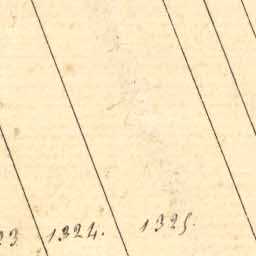 23 1324. 1325.